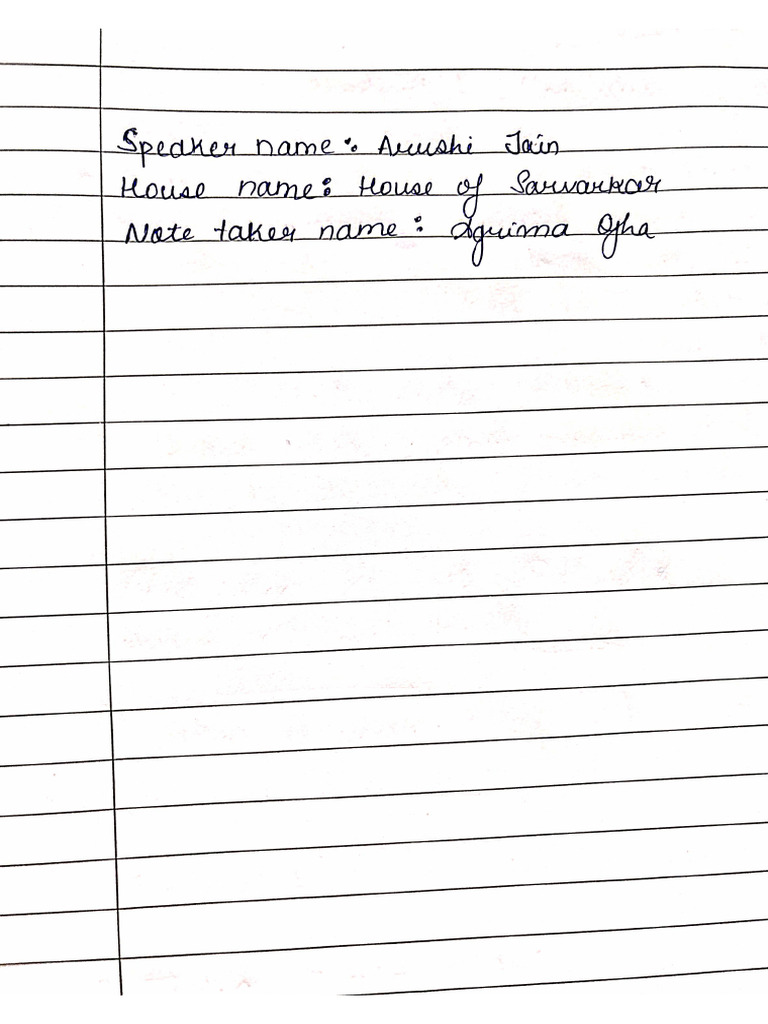 Speaker name : Arushi Jain
House name : House of Sarvarkar
Note taker name : Ojha